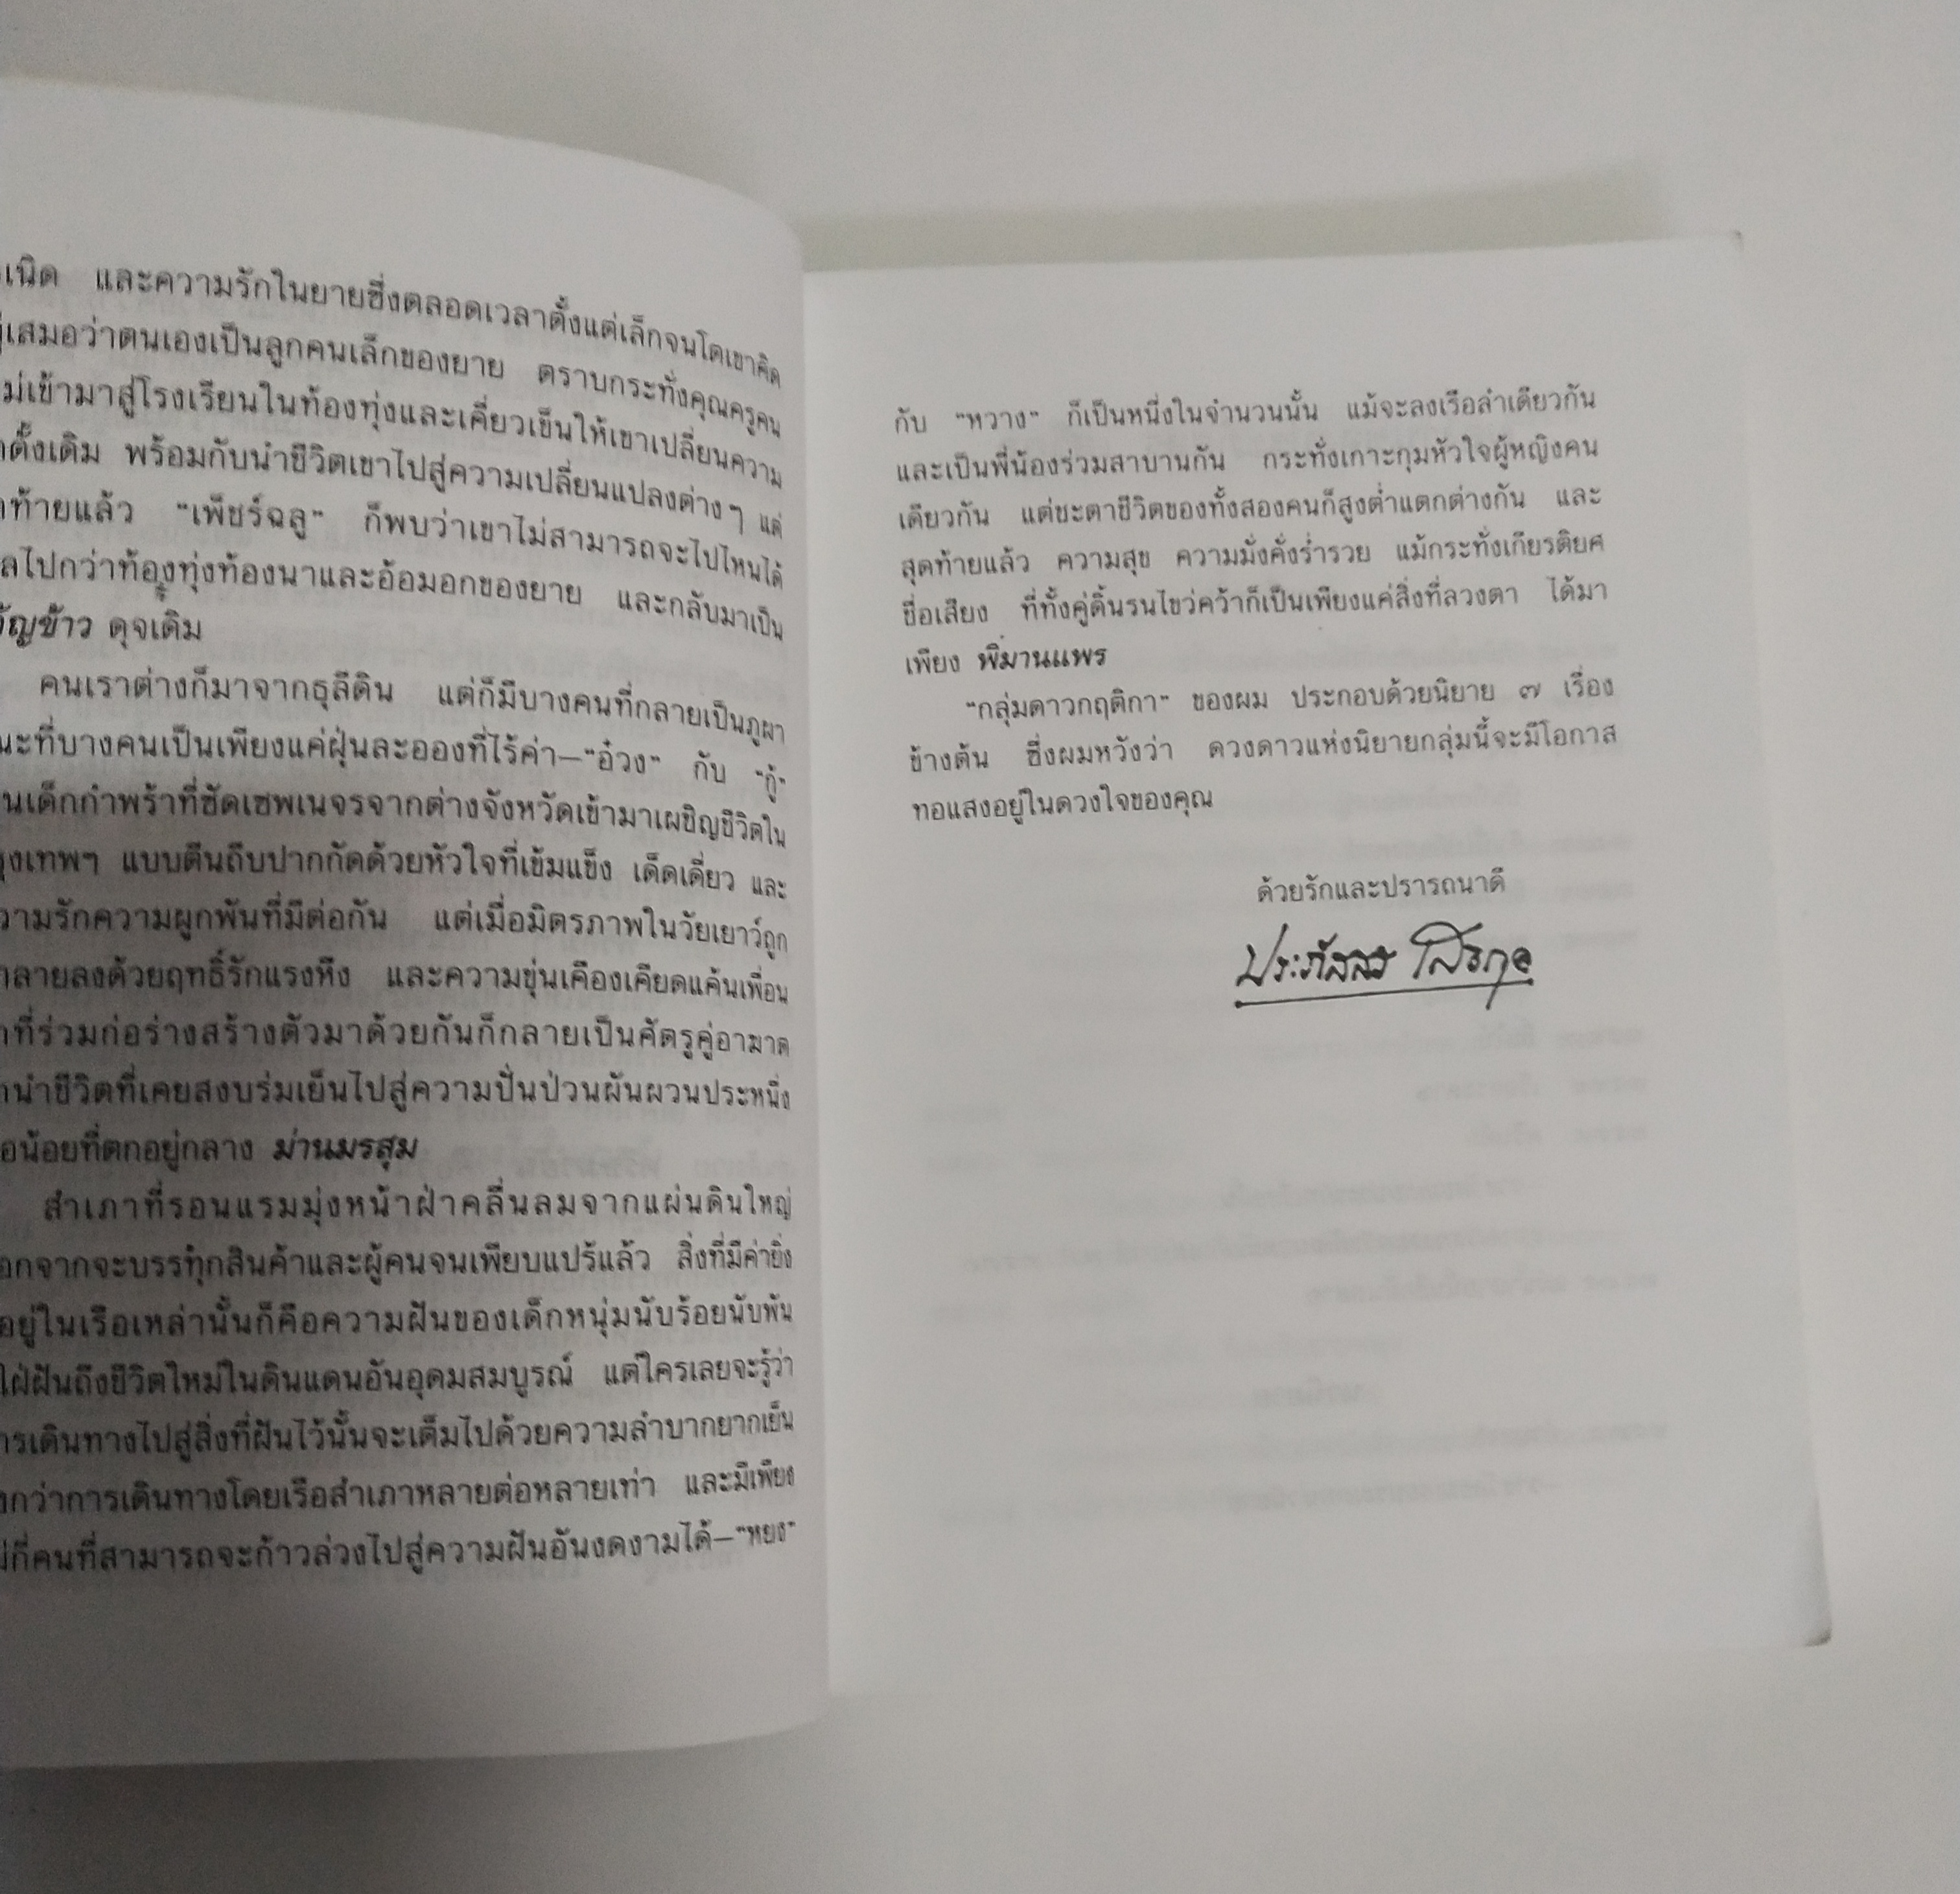 เนิด และความรักในยายซึ่งตลอดเวลาตั้งแต่เล็กจนโตเขาคิด
เสมอว่าตนเองเป็นลูกคนเล็กของยาย ตราบกระทั่งคุณครูคน
เข้ามาสู่โรงเรียนในท้องทุ่งและเคี่ยวเข็นให้เขาเปลี่ยนความ
ดั้งเดิม พร้อมกับนำชีวิตเขาไปสู่ความเปลี่ยนแปลงต่างๆ แต่
ท้ายแล้ว "เพ็ชร์ฉลู" ก็พบว่าเขาไม่สามารถจะไปไหนได้
ลไปกว่าท้องทุ่งท้องนาและอ้อมอกของยาย และกลับมาเป็น
วัญข้าว ดุจเดิม
คนเราต่างก็มาจากธุลีดิน แต่ก็มีบางคนที่กลายเป็นภูผา
ณะที่บางคนเป็นเพียงแค่ฝุ่นละอองที่ไร้ค่า—"อ๋วง" กับ "กู้"
นเด็กกำพร้าที่ซัดเซพเนจรจากต่างจังหวัดเข้ามาเผชิญชีวิตใน
รุงเทพฯ แบบตีนถีบปากกัดด้วยหัวใจที่เข้มแข็ง เด็ดเดี่ยว และ
วามรักความผูกพันที่มีต่อกัน แต่เมื่อมิตรภาพในวัยเยาว์ถูก
ำลายลงด้วยฤทธิ์รักแรงหึง และความขุ่นเคืองเคียดแค้นเพื่อน
ที่ร่วมก่อร่างสร้างตัวมาด้วยกันก็กลายเป็นศัตรูคู่อาฆาต
นำชีวิตที่เคยสงบร่มเย็นไปสู่ความปั่นป่วนผันผวนประหนึ่ง
อน้อยที่ตกอยู่กลาง ม่านมรสุม
สำเภาที่รอนแรมมุ่งหน้าฝ่าคลื่นลมจากแผ่นดินใหญ่
อกจากจะบรรทุกสินค้าและผู้คนจนเพียบแปร้แล้ว สิ่งที่มีค่ายิ่ง
อยู่ในเรือเหล่านั้นก็คือความฝันของเด็กหนุ่มนับร้อยนับพัน
ใฝ่ฝันถึงชีวิตใหม่ในดินแดนอันอุดมสมบูรณ์ แต่ใครเลยจะรู้ว่า
ารเดินทางไปสู่สิ่งที่ฝันไว้นั้นจะเต็มไปด้วยความลำบากยากเย็น
กว่าการเดินทางโดยเรือสำเภาหลายต่อหลายเท่า และมีเพียง
ม่กี่คนที่สามารถจะก้าวล่วงไปสู่ความฝันอันงดงามได้—"หยง"
กับ "หวาง" ก็เป็นหนึ่งในจำนวนนั้น แม้จะลงเรือลำเดียวกัน
และเป็นพี่น้องร่วมสาบานกัน กระทั่งเกาะกุมหัวใจผู้หญิงคน
เดียวกัน แต่ชะตาชีวิตของทั้งสองคนก็สูงต่ำแตกต่างกัน และ
สุดท้ายแล้ว ความสุข ความมั่งคั่งร่ำรวย แม้กระทั่งเกียรติยศ
ชื่อเสียง ที่ทั้งคู่ดิ้นรนไขว่คว้าก็เป็นเพียงแค่สิ่งที่ลวงตา ได้มา
เพียง พิมานแพร
"กลุ่มดาวกฤติกา" ของผม ประกอบด้วยนิยาย ๗ เรื่อง
ข้างต้น ซึ่งผมหวังว่า ดวงดาวแห่งนิยายกลุ่มนี้จะมีโอกาส
ทอแสงอยู่ในดวงใจของคุณ
ด้วยรักและปรารถนาดี
ประภัสสร เสวิกุล